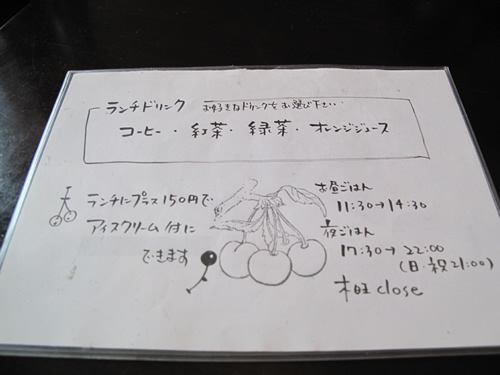 ランチドリンク お好きなドリンクをお選び下さい
コーヒー・紅茶・緑茶・オレンジジュース
ランチにプラス150円で
アイスクリーム付に
できます
お昼ごはん
11:30→14:30
夜ごはん
17:30→22:00
(日・祝21:00)
木曜close